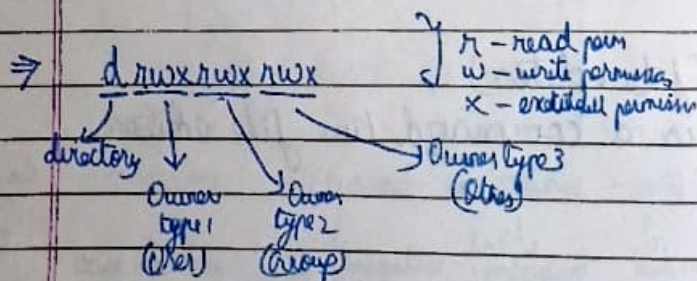 ⇒ d rwx rwx rwx
r - read perm
w - write permission
x - permission
directory
Owner type1 (User)
Owner type2 (Group)
Owner type3 (Other)